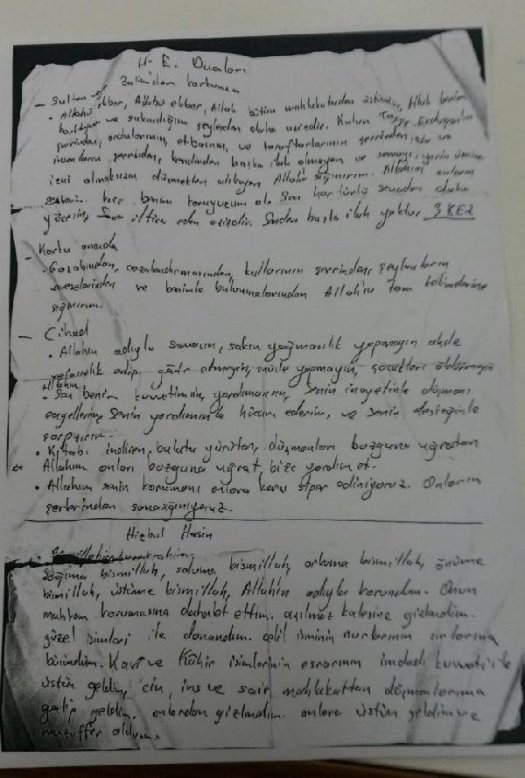 H. E. Duaları
Zalimden korkunca
- Sultan
• Allahu Ekber, Allahu ekber, Allah bütün mahlukatından üstündür, Allah benim
korktuğum ve sakındığım şeylerden daha azizdir. Kulun
şerrinden, ordularının, etbaının, ve taraftarlarının şerrinden, ins ve
cinnin şerrinden, kendinden başka ilah olmayan ve semayı yerin üzerine
izni olmaksızın düşmekten alıkoyan Allaha sığınırım. Allahım onların
şerrinden beni koruyucum ol. Sen her türlü senadan daha
yücesin, Sana iltica eden azizdir. Senden başka ilah yoktur. 3 KEZ
- Korku anında
• Gazabından, cezalandırmasından, kullarının şerrinden, şeytanların
vesveselerinden ve benimle bulunmalarından Allah'ın tam kelimelerine
sığınırım.
- Cihad
• Allahın adıyla savaşın, sakın yağmacılık yapmayın ahde
edip, etmeyin, müsle yapmayın, çocukları öldürmeyin
• Allahım Sen benim kuvvetimsin, yardımcımsın, Senin inayetinle düşmanı
engellerim, Senin yardımınla hücum ederim, ve Senin desteğinle
çarpışırım.
• Kitabı indiren, bulutu yürüten, düşmanları bozguna uğratan
Allahım onları bozguna uğrat, bize yardım et.
• Allahım senin korumanı onlara karşı siper ediniyoruz. Onların
şerlerinden sana sığınıyoruz.
Hizbul Hasin
Sağıma bismillah, soluma bismillah, arkama bismillah, önüme
bismillah, üstüme bismillah, Allahın adıyla korundum. Onun
muhkem korumasına dehalet ettim. açılmaz kalesine gizlendim.
güzel isimleri ile donandım. celil isminin nurlarının sırlarına
büründüm. Kavi ve Kahir isimlerinin esrarının imdadı kuvvetiyle
üstün geldim, cin, ins ve sair mahlukattan düşmanlarıma
galip geldim. onlardan gizlendim. onlara üstün geldim ve
muzaffer oldum.